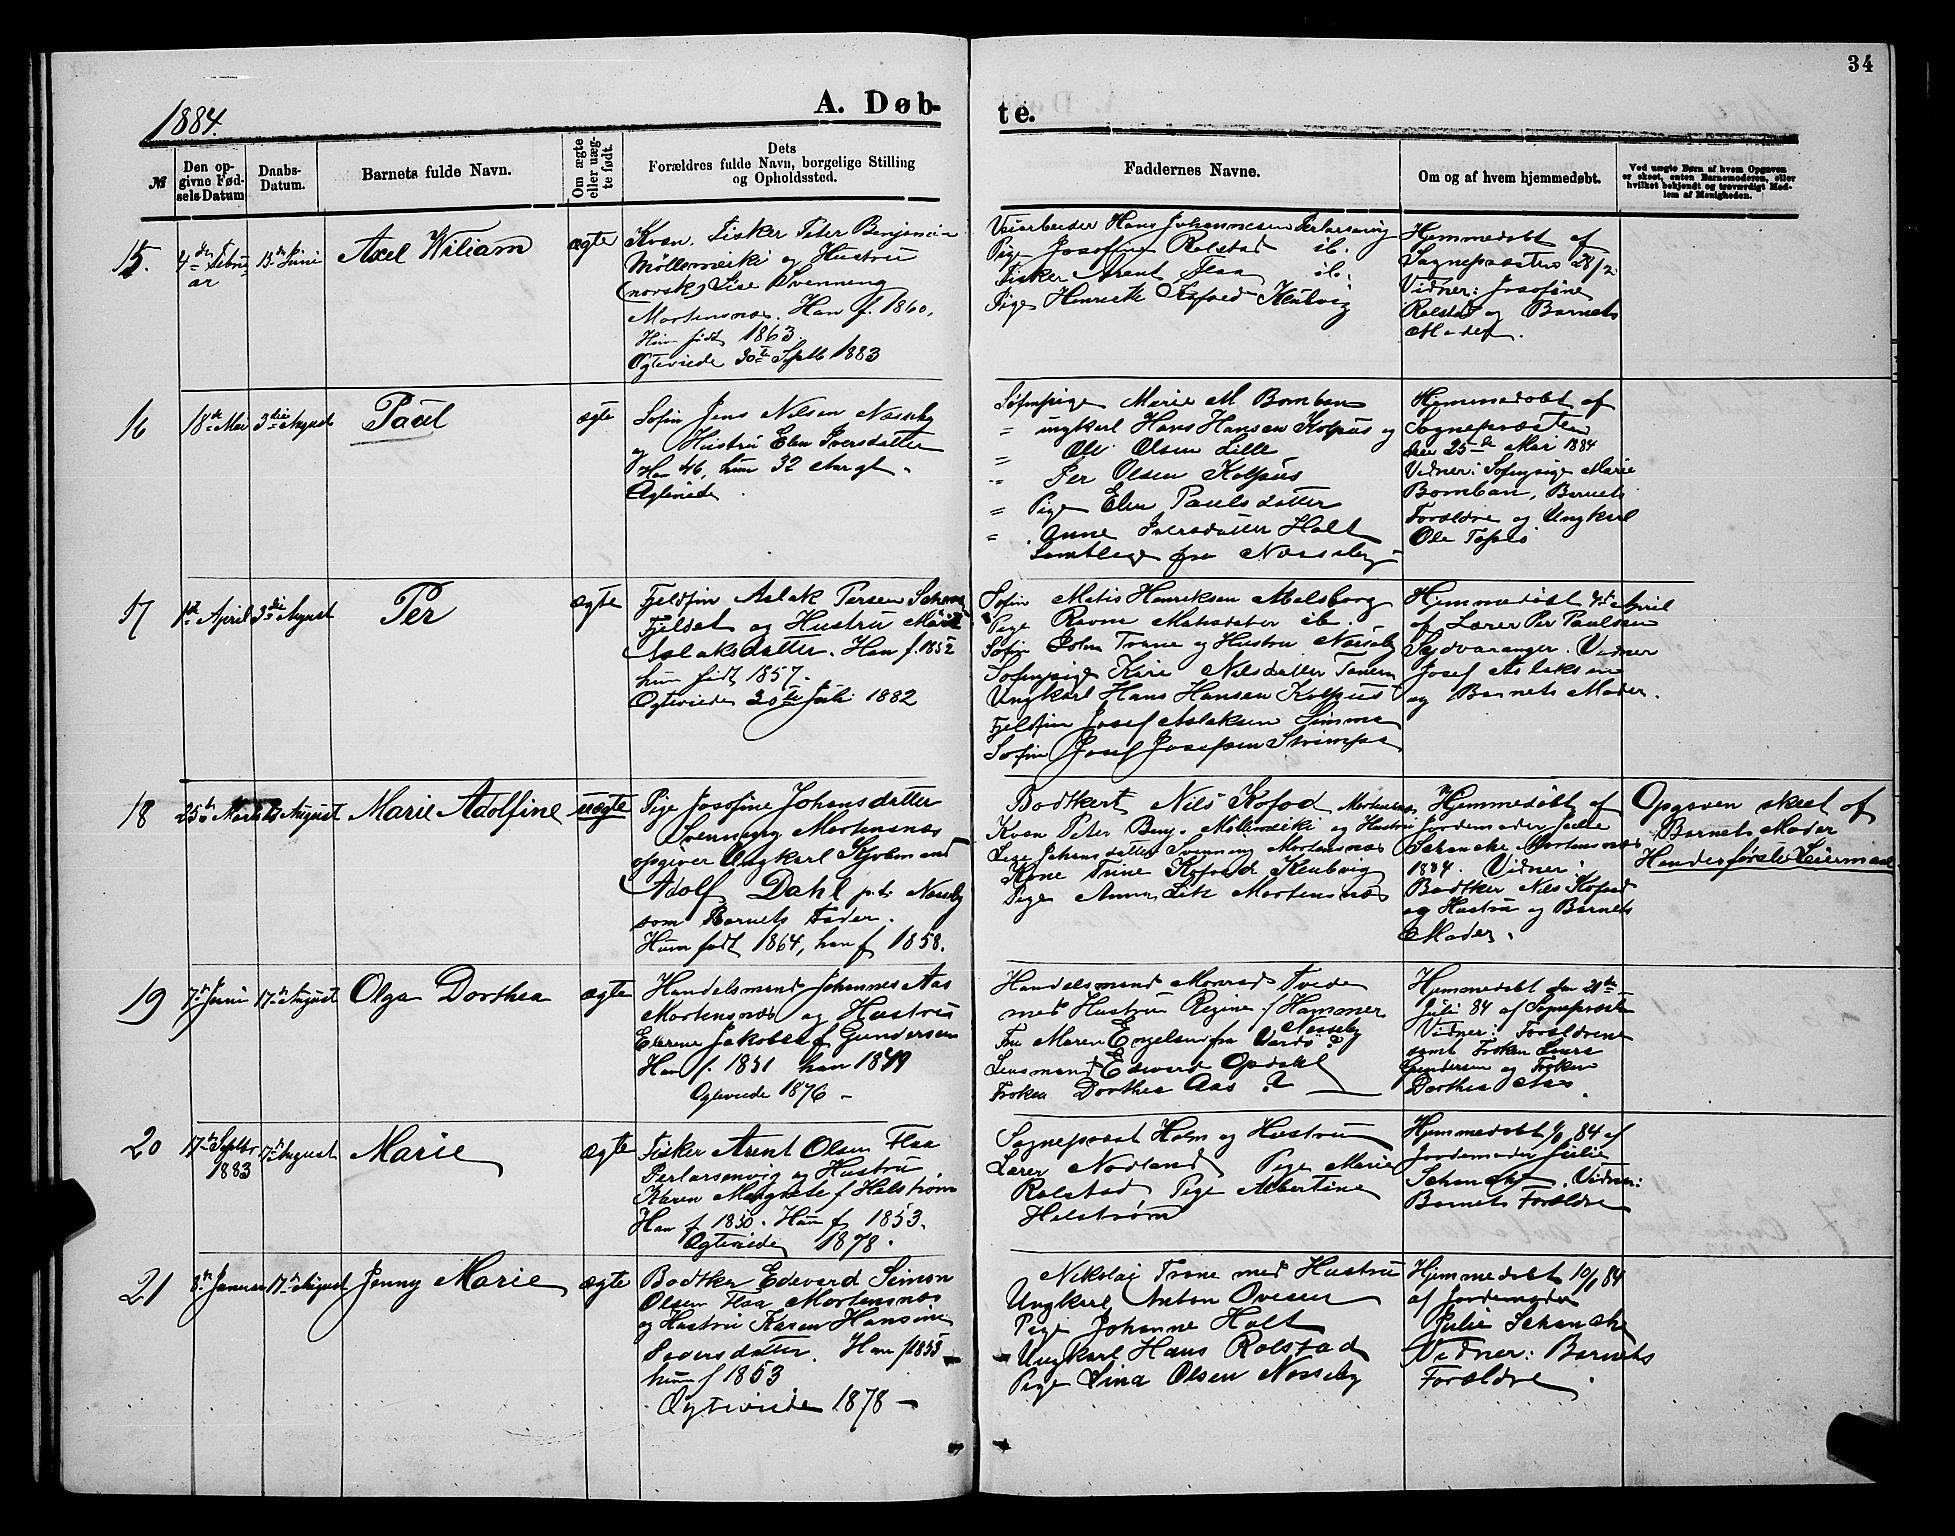 34
1884.
A. Døb-
te.
№
Den op-
givne Fød-
sels-Datum
Daabs-
Datum.
Barnets fulde Navn.
Om ægte
eller uæg-
te født.
Dets
Forældres fulde Navn, borgelige Stilling
og Opholdssted.
Faddernes Navne.
Om og af hvem hjemmedøbt.
Ved uægte Børn af hvem Opgaven
er skeet, enten Barnemoderen, eller
hvilket bekjendt og troværdigt Med-
lem af Menigheden.
15.
4de Febru
ar
Juni
Axel Wiliam
ægte
Kvæn. Fisker Peter Benjamin
Mølleneiki og Hustru
(norsk) Lise Svenning
Mortensnæs. Han f. 1860,
Hun født 1863
Ægteviede 30te Septb 1883
Hans Johannesen
Pige Josefine Rolstad ib.
Fisker Arent Flaa ib.
Pige Henriette Kofoed
Hjemmedøbt af
Sognepræsten 28/2
Vidner: Josefine
Rolstad og Barnets
Moder.
16
18de Mai
3die August
Paul
ægte
Søfin Jens Nilsen Næsseby
og Hustru Elen Iversdatter
Han 46, hun 32 Aar gl.
Ægteviede
Søfinpige Marie M Bomban
" ungkarl Hans Hansen Kolpus og
" Ole Olsen Lille
" Per Olsen Kolpus
" Pige Elen Paulsdatter
" Anne Iversdatter Holt
Samtlige fra Næsseby
Hjemmedøbt af
Sognepræsten
den 25de Mai 1884
Vidner: Søfinpige Marie
Bomban, Barnets
Forældre og Ungkarl
Ole
17
1st April
3die August
Per
ægte
Fjeldfin Aslak Persen
Fjeldet og Hustru
Aslaksdatter. Han f. 1852
hun født 1857.
Ægteviede 30te Juli 1882
Søfin Matis Henriksen
Pige Ravna Matisdatter ib.
Søfin John Trane og Hustru Næsseby
Søfinpige Kari Nilsdatter
Ungkarl Hans Hansen Kolpus
Fjeldfin Josef Aslaksen
Søfin Josef Josefsen
Hjemmedøbt April
af Lærer Per Paulsen
Sydvaranger. Vidner
Josef Aslaksen
og Barnets Moder.
18
25de Marts
August
Marie Adolfine
uægte
Pige Josefine Johansdatter
Svenning Mortensnæs
opgiver Ungkarl
Adolf Dahl p.t. Næsseby
som Barnets Fader.
Hun født 1864, han f 1858.
Bødtker Nils Kofod Mortensnæs
Kvæn Peter Benj. Mølleneiki og Hustru
Lise Johansdatter Svenning Mortensnæs
Kone Trine Kofoed
Pige Anna Mortensnæs
Hjemmedøbt af
Jordemoder Julie
Schanche Mortensnæs
1884. Vidner:
Bødtker Nils Kofoed
og Hustru og Barnets
Moder.
Opgaven skeet af
Barnets Moder
Hendes første Leiermaal
19
7de Juni
17de August
Olga Dorthea
ægte
Handelsmand Johannes Aas
Mortensnæs og Hustru
Jakobea f Gundersen
Han f. 1851 hun 1849
Ægteviede 1876
Handelsmand Monrad
med Hustru Regine f Hammer
Næsseby
Fru Maren Engelsen fra Vardø
Lensmand Edvard Opdahl
Frøken Dorthea Aas
Hjemmedøbt den 21de
Juli 84 af Sognepræsten
Vidner: Forældrene
samt Frøken Laura
Gundersen og Frøken
Dorthea Aas.
20
17de Septbr
1883
17de August
Marie
ægte
Fisker Arent Olsen Flaa
og Hustru
Karen Margrete f Halstrøm
Han f 1850. Hun f 1853.
Ægteviede 1878.
Sognepræst Holm og Hustru
Lærer Nodland Pige Marie
Rolstad Pige Albertine
Halstrøm
Hjemmedøbt 84 af
Jordemoder Julie
Schanche. Vidner:
Barnets Forældre
21
8de Januar
17de August
Jenny Marie
ægte
Bødtker Edevard Simon
Olsen Flaa Mortensnæs
og Hustru Karen Hansine
Han f 1855
hun f 1853
Ægteviede 1878
Nikolai Trane med Hustru
Ungkarl Anton Ovesen
Pige Johanne Holt
Ungkarl Hans Rolstad
Pige Lina Olsen Næsseby
Hjemmedøbt 10/1 84
af Jordemoder
Julie Schanche
Vidner: Barnets
Forældre.